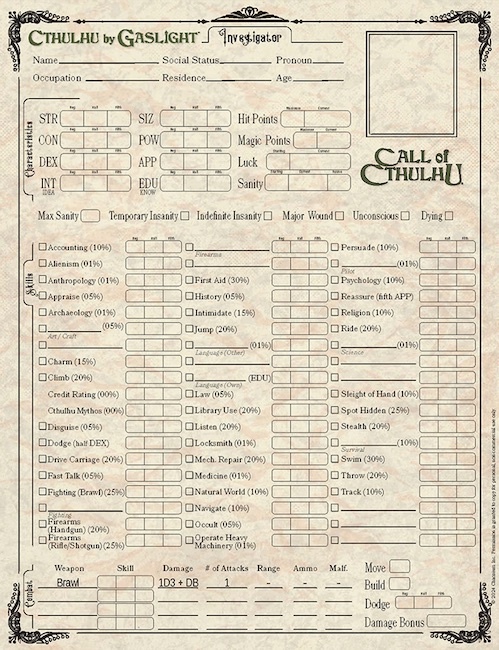 CTHULHU BY GASLIGHT Investigator
Name Social Status Pronoun
Occupation Residence Age
CALL of CTHULHU
Characteristics
Reg Half Fifth Reg Half Fifth Maximum Current
STR SIZ Hit Points
CON POW Magic Points
DEX APP Luck
INT EDU Sanity
IDEA KNOW
Max Sanity Temporary Insanity Indefinite Insanity Major Wound Unconscious Dying
Skills
Accounting (10%)
Alienism (01%)
Anthropology (01%)
Appraise (05%)
Archaeology (01%)
(05%)
Art / Craft
Charm (15%)
Climb (20%)
Credit Rating (00%)
Cthulhu Mythos (00%)
Disguise (05%)
Dodge (half DEX)
Drive Carriage (20%)
Fast Talk (05%)
Fighting (Brawl) (25%)
Fighting
Firearms
(Handgun) (20%)
Firearms
(Rifle/Shotgun) (25%)
Firearms
First Aid (30%)
History (05%)
Intimidate (15%)
Jump (20%)
(01%)
Language (Other)
(EDU)
Language (Own)
Law (05%)
Library Use (20%)
Listen (20%)
Locksmith (01%)
Mech. Repair (20%)
Medicine (01%)
Natural World (10%)
Navigate (10%)
Occult (05%)
Operate Heavy
Machinery (01%)
Persuade (10%)
(01%)
Pilot
Psychology (10%)
Reassure (fifth APP)
Religion (10%)
Ride (20%)
(01%)
Science
Sleight of Hand (10%)
Spot Hidden (25%)
Stealth (20%)
(10%)
Survival
Swim (30%)
Throw (20%)
Track (10%)
Combat
Weapon Skill Damage # of Attacks Range Ammo Malf.
Brawl 1D3 + DB 1 - - -
Move
Build
Dodge
Damage Bonus
© 2024 Chaosium Inc. Permission is granted to copy for personal, non-commercial use only.